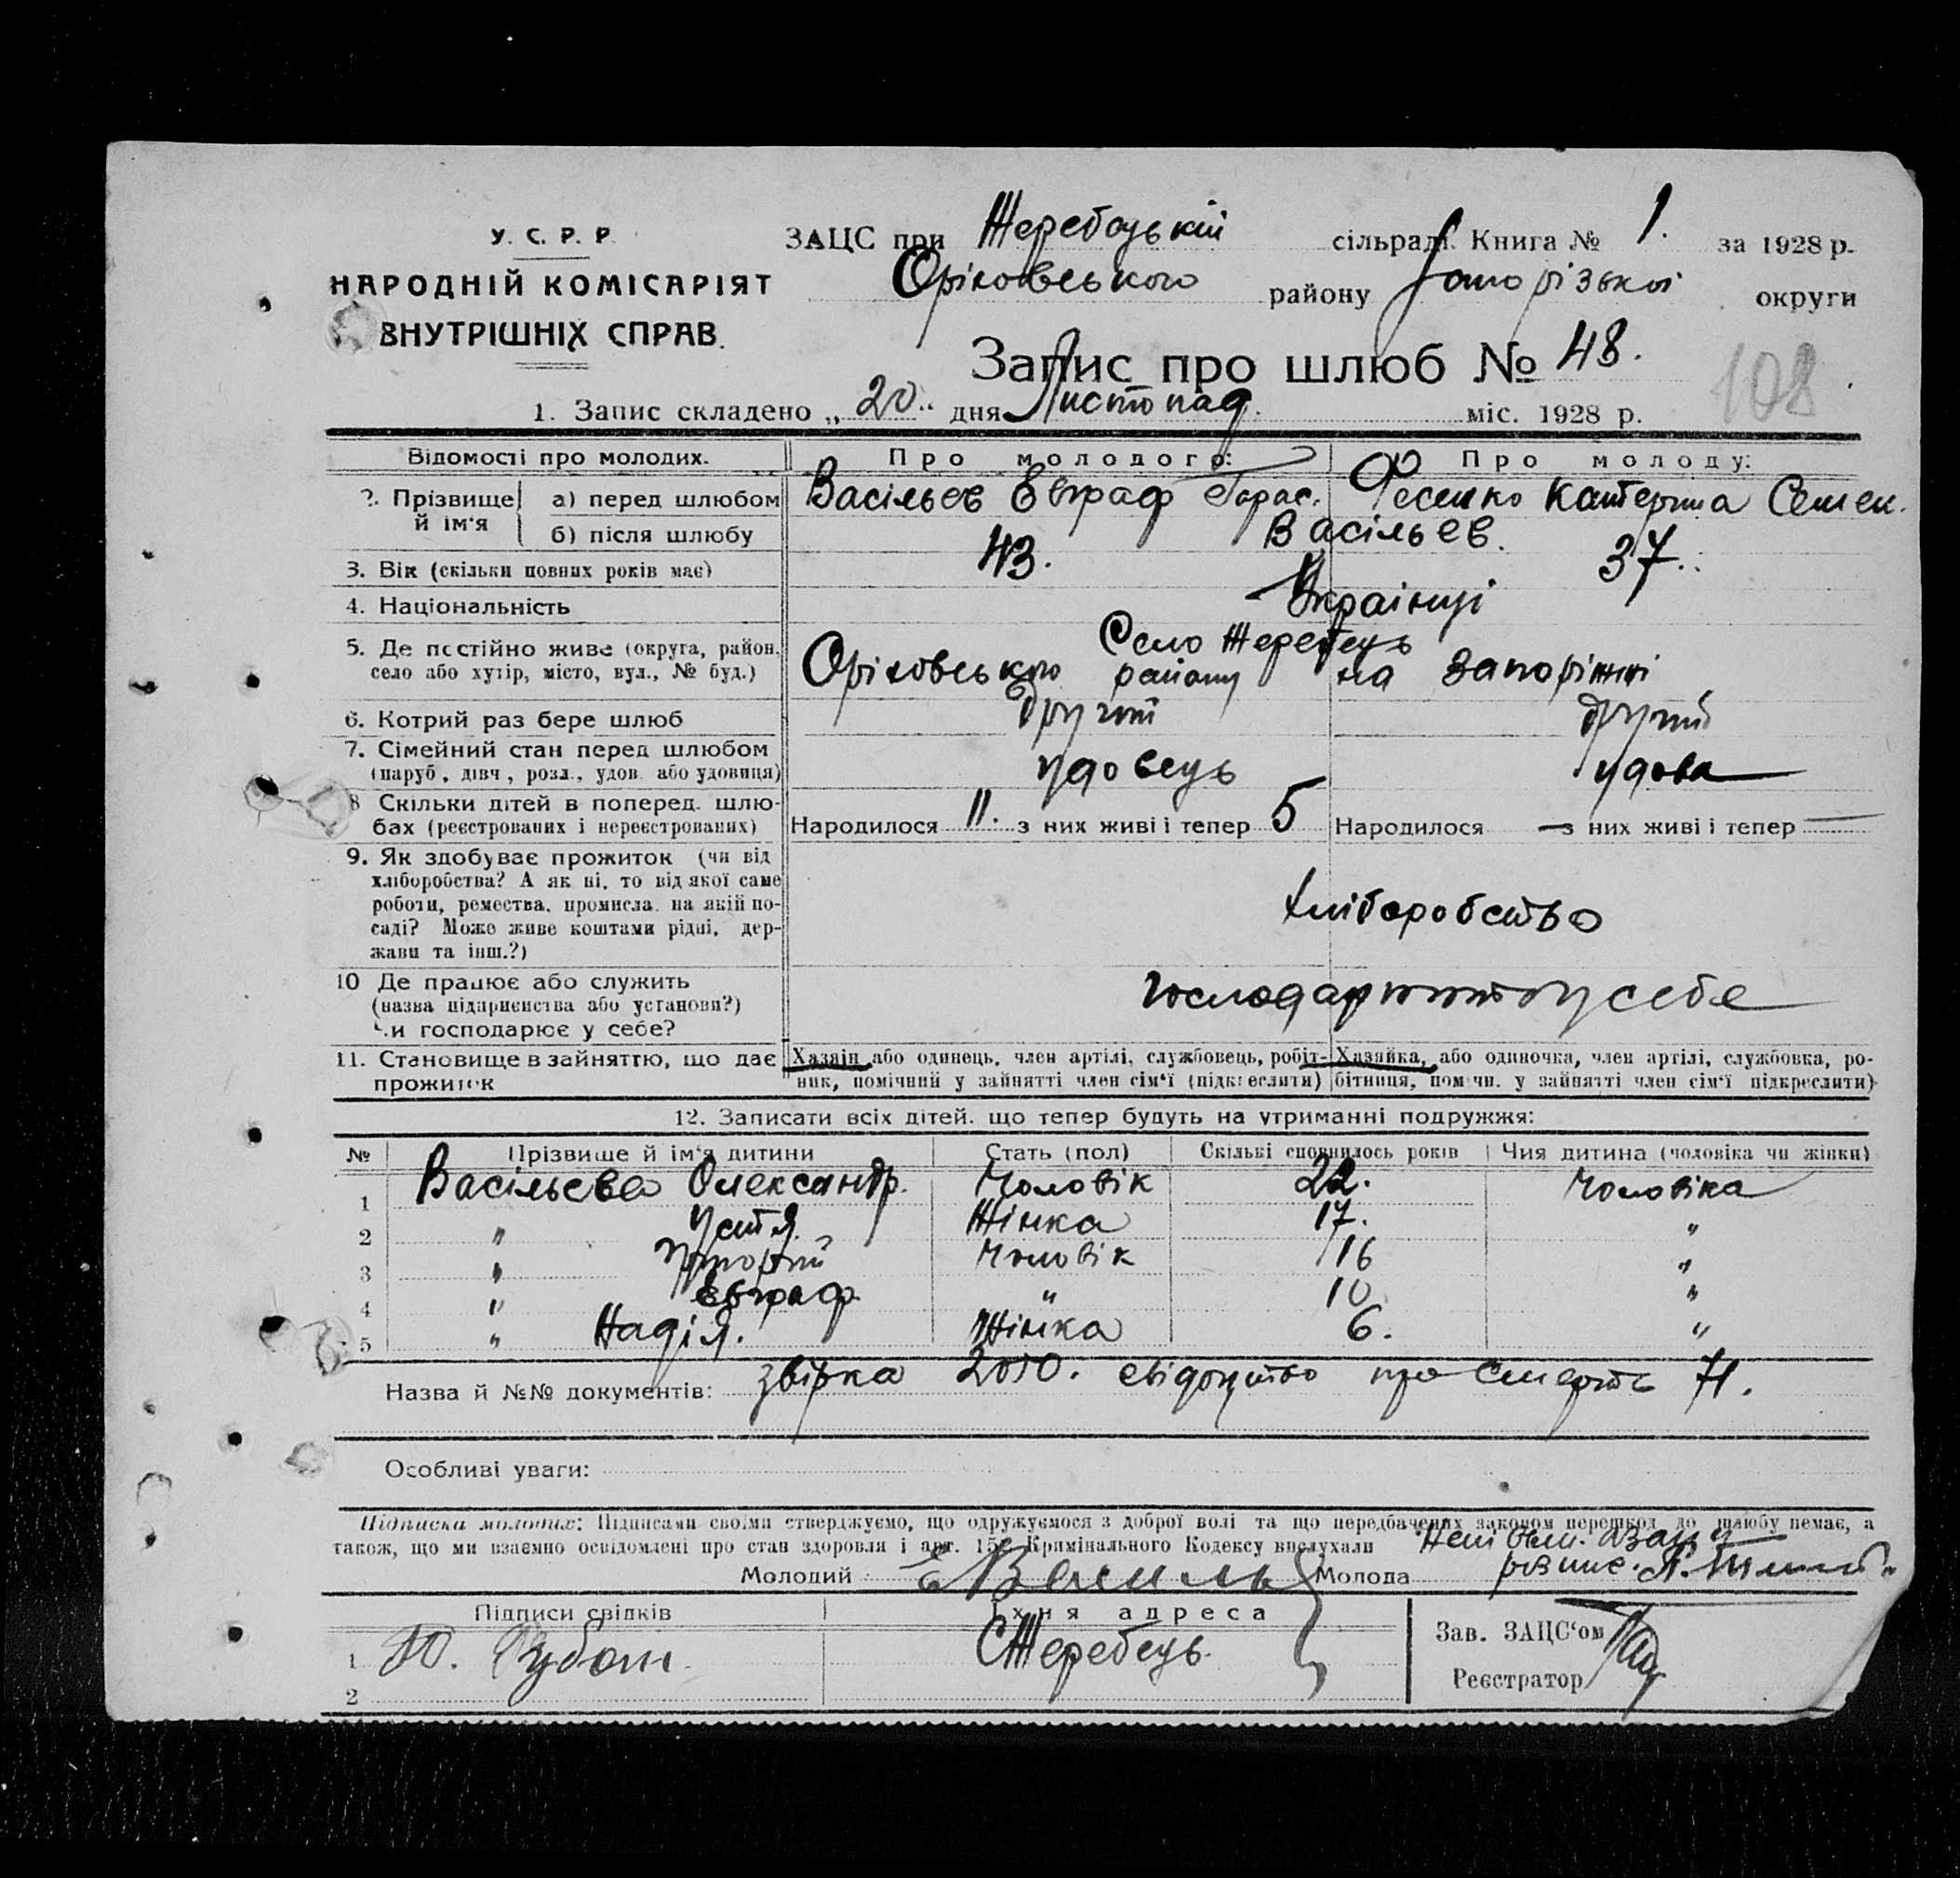 У. С. Р. Р.
НАРОДНІЙ КОМІСАРІЯТ
ВНУТРІШНІХ СПРАВ.
ЗАЦС при Жеребецькій сільраді. Книга № 1. за 1928 р.
Оріховського району Запорізької округи
Запис про шлюб № 48.
108
1. Запис складено „20" дня Листопад. міс. 1928 р.
Відомості про молодих. Про молодого: Про молоду:
2. Прізвище й ім'я а) перед шлюбом Васільєв Евграф Гарас. Фесенко Катерина Семен.
б) після шлюбу Васільєв.
3. Вік (скільки повних років має) 43. 37.
4. Національність Українці
5. Де постійно живе (округа, район, Село Жеребець
село або хутір, місто, вул., № буд.) Оріховського району на Запоріжжі
6. Котрий раз бере шлюб другий другий
7. Сімейний стан перед шлюбом
(паруб., дівч., розл., удов. або удовиця) удовець удова
8 Скільки дітей в поперед. шлю-
бах (реєстрованих і нереєстрованих) Народилося 11. з них живі і тепер 5 Народилося — з них живі і тепер —
9. Як здобуває прожиток (чи від
хліборобства? А як ні, то від якої саме
роботи, ремества, промисла, на якій по-
саді? Може живе коштами рідні, дер-
жави та інш.?) хліборобство
10 Де працює або служить
(назва підприємства або установи?)
чи господарює у себе? у себе
11. Становище в зайняттю, що дає
прожиток
Хазяїн або одинець, член артілі, службовець, робіт-
ник, помічний у зайнятті член сім'ї (підкреслити)
Хазяйка, або одиночка, член артілі, службовка, ро-
бітниця, помічн. у зайнятті член сім'ї підкреслити)
12. Записати всіх дітей, що тепер будуть на утриманні подружжя:
№ Прізвище й ім'я дитини Стать (пол) Скількі сповнилось років Чия дитина (чоловіка чи жінки)
1 Васільєва Олександр. Чоловік 22. Чоловіка
2 " Устя Жінка 17. "
3 " Чоловік 16 "
4 " Евграф " 10 "
5 " Надія. Жінка 6. "
Назва й №№ документів: звірка 2010. свідоцтво про смерть 71.
Особливі уваги:
Підписка молодих: Підписами своїми стверджуємо, що одружуємося з доброї волі та що передбачених законом перешкод до шлюбу немає, а
також, що ми взаємно освідомлені про стан здоровля і арт. 15 Кримінального Кодексу вислухали
Молодий Е Васильев Молода
Підписи свідків Їхня адреса
1 Ю. С Жеребець.
2
Зав. ЗАЦС'ом
Реєстратор